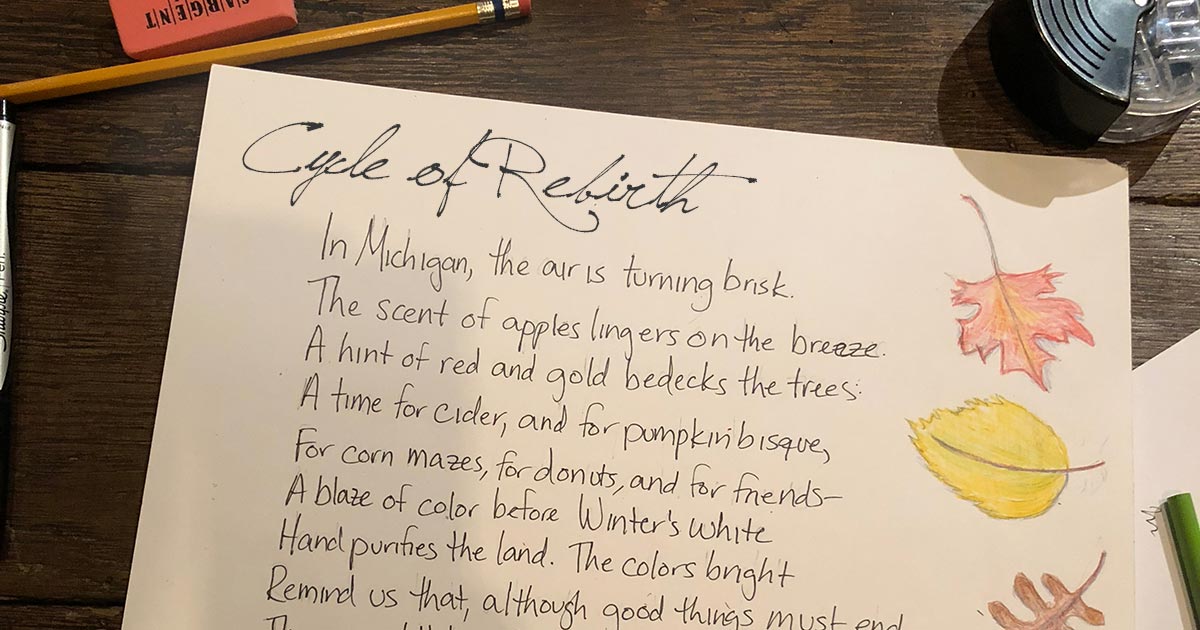 SARGENT
Cycle of Rebirth
In Michigan, the air is turning brisk.
The scent of apples lingers on the breeze.
A hint of red and gold bedecks the trees:
A time for cider, and for pumpkin bisque,
For corn mazes, for donuts, and for friends—
A blaze of color before Winter's white
Hand purifies the land. The colors bright
Remind us that, although good things must end
Sharpie